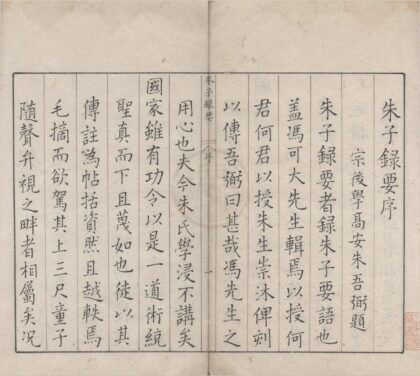 朱子録要序
宗後學髙安朱吾弼題
朱子録要者録朱子要語也
盖馮可大先生輯焉以授何
君何君以授朱生崇沐俾刻
以傳吾弼曰甚哉馮先生之
朱子録要
序
一
用心也夫今朱氏學浸不講矣
國家雖有功令以是一道術統
聖真而下且蔑如也徒以其
傳註為帖括資然且越軼焉
毛摘而欲駕其上三尺童子
随聲弁視之畔者相屬矣况